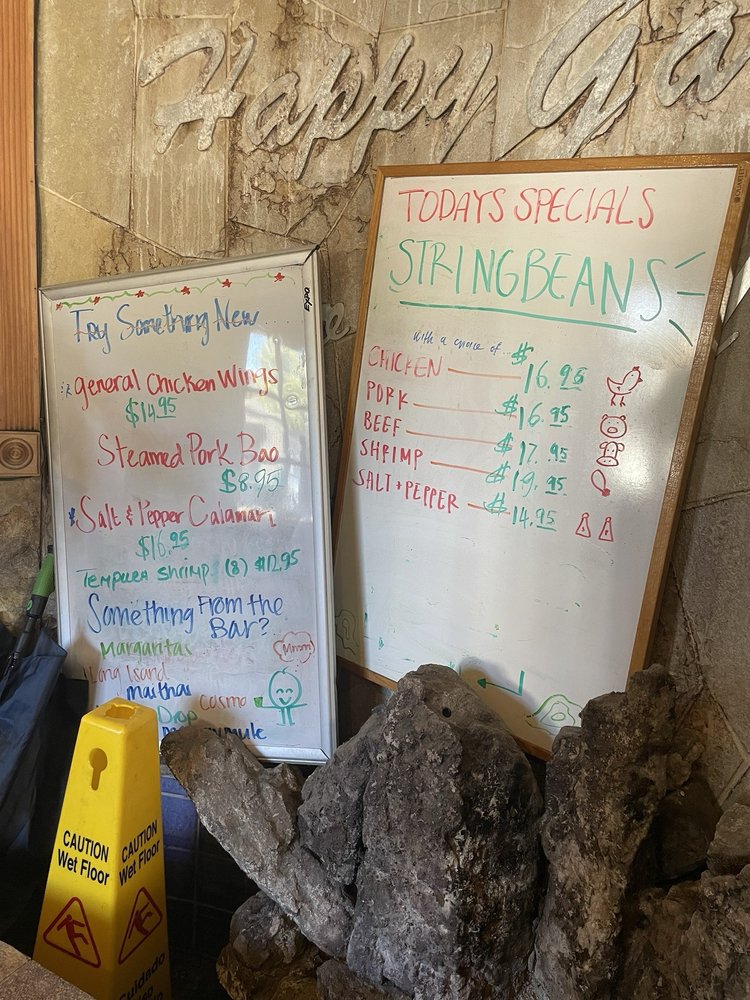 Happy Ga
EXPO
Try Something New
general Chicken Wings
$14.95
Steamed Pork Bao
$8.95
Salt & Pepper Calamari
$16.95
Tempura Shrimp (8) $12.95
Something From the
Bar?
Margaritas
Mmm
Long Island
maithai
Cosmo
Drop
mule
TODAYS SPECIALS
STRINGBEANS
with a choice of...
CHICKEN $16.95
PORK $16.95
BEEF $17.95
SHRIMP $19.95
SALT + PEPPER $14.95
CAUTION
Wet Floor
CAUTION
Wet Floor
Cuidado